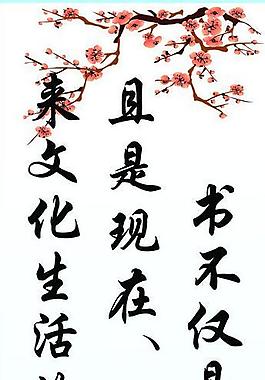 书不仅是
且是现在、
来文化生活